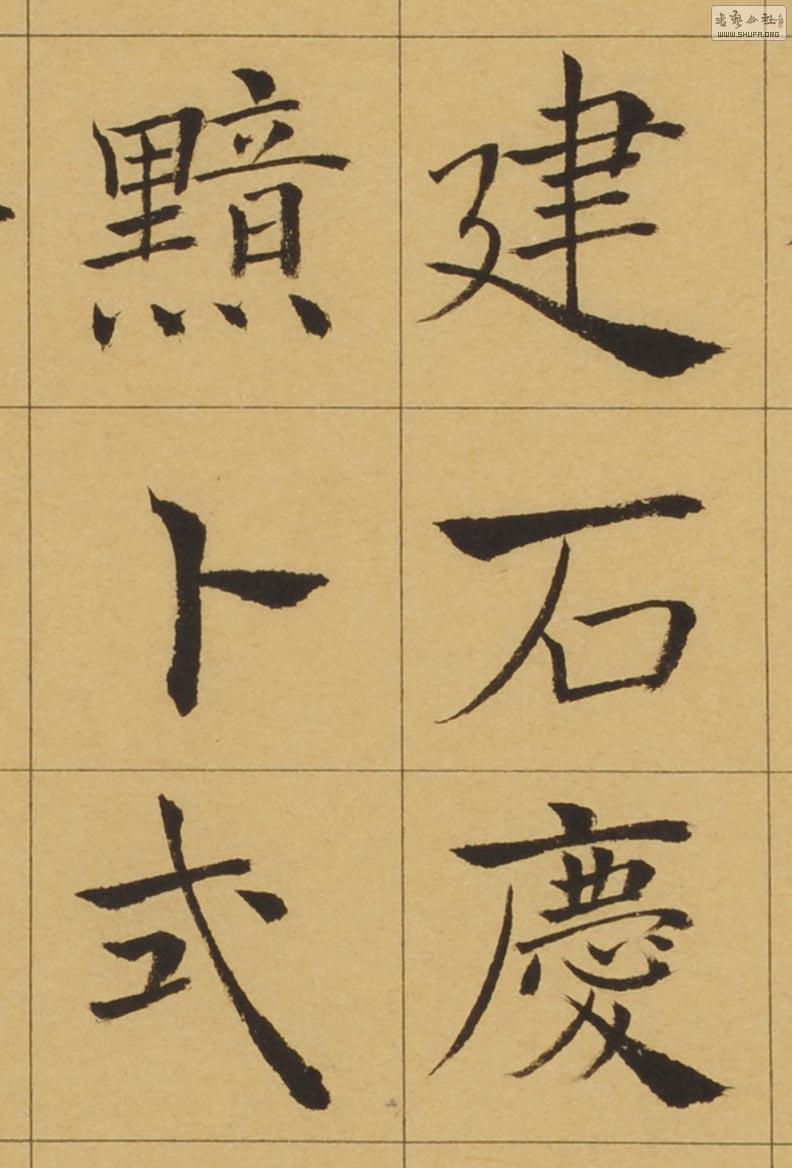 建石慶
黯卜式
書藝公社
WWW.SHUFA.ORG